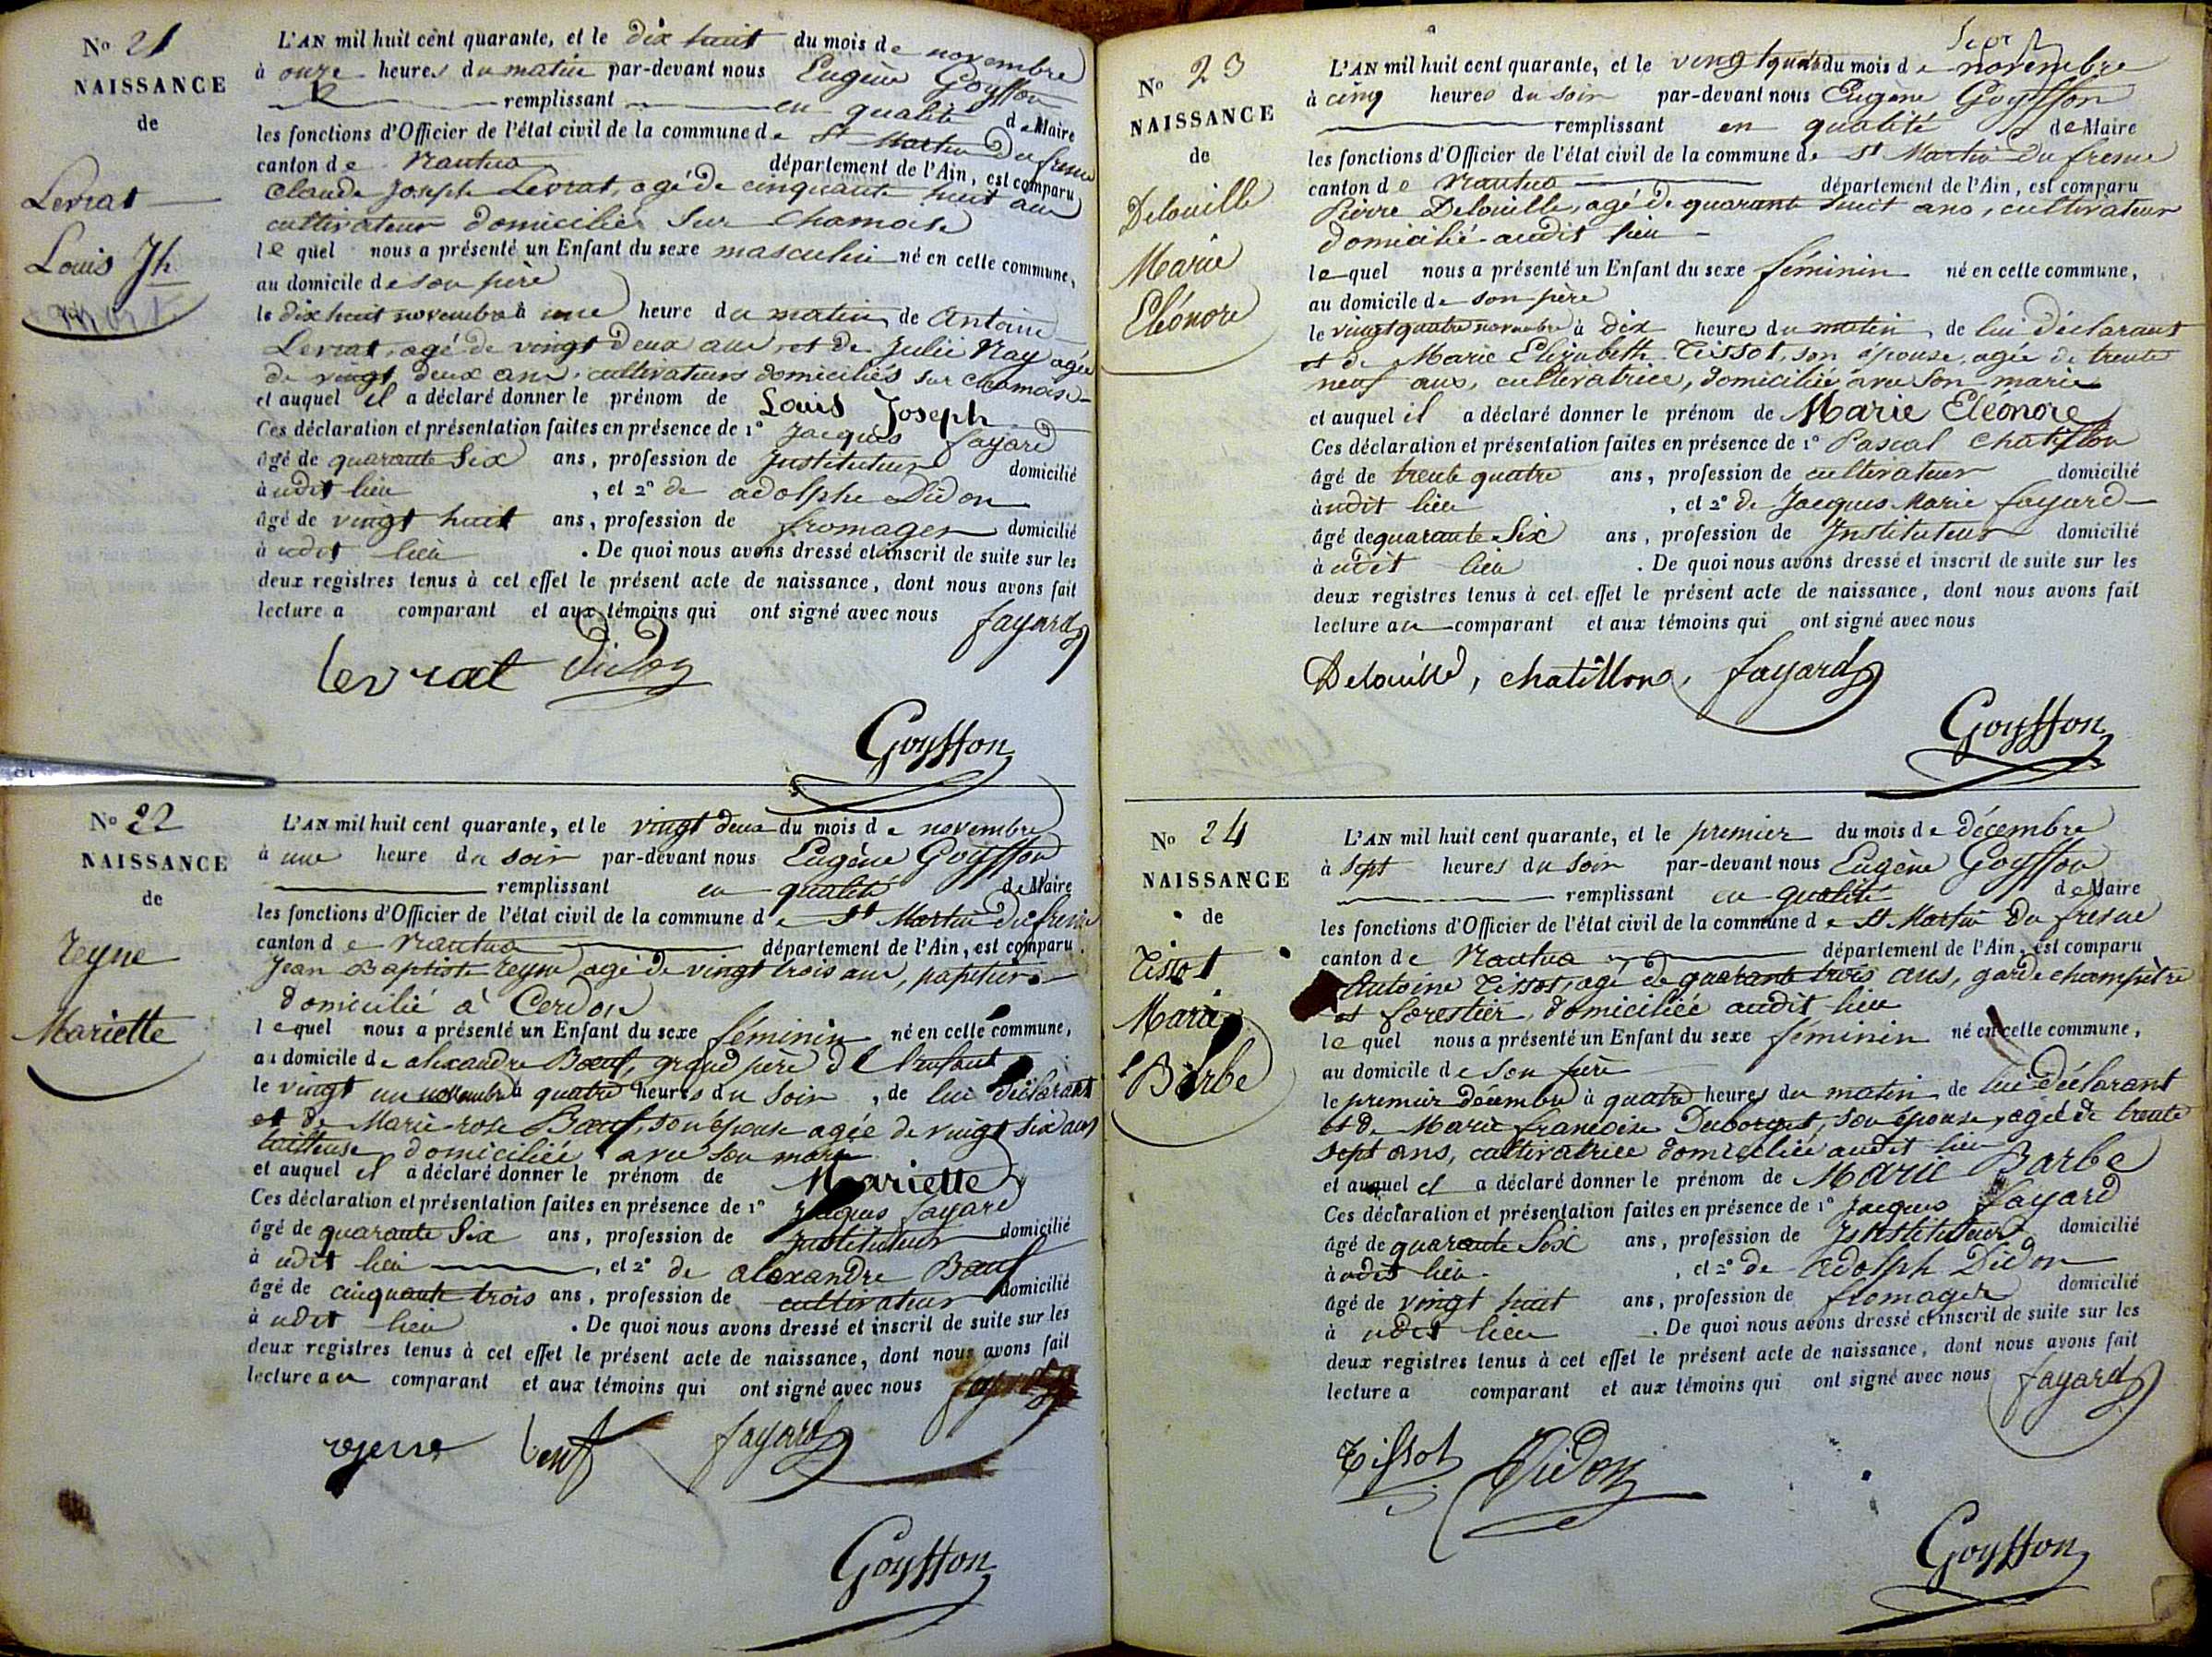 No 21
NAISSANCE
de
Levrat
Louis Jh
mort
L'AN mil huit cent quarante, et le dix huit du mois de novembre
à onze heures du matin par-devant nous Eugène Goyffon
remplissant en qualité de Maire
les fonctions d'Officier de l'état civil de la commune de St Martin Du fresne
canton de Nantua département de l'Ain, est comparu
Claude Joseph Levrat, agé de cinquante huit ans
cultivateur domicilié Sur Chamoise
lequel nous a présenté un Enfant du sexe masculin né en cette commune,
au domicile de son père
le dix huit novembre à une heure du matin de Antoine
Levrat, agé de vingt deux ans, et de Julie Nay agée
de vingt deux ans, cultivateurs domiciliés sur Chamoise
et auquel il a déclaré donner le prénom de Louis Joseph
Ces déclaration et présentation faites en présence de 1° Jacques fayard
âgé de quarante Six ans, profession de Instituteur domicilié
audit lieu, et 2° de adolphe Didon
âgé de vingt huit ans, profession de fromager domicilié
à udit lieu. De quoi nous avons dressé et inscrit de suite sur les
deux registres tenus à cet effet le présent acte de naissance, dont nous avons fait
lecture a comparant et aux témoins qui ont signé avec nous fayard
levrat Didon
Goyffon
No 22
NAISSANCE
de
reyne
Mariette
L'AN mil huit cent quarante, et le vingt deux du mois de novembre
à une heure du soir par-devant nous Eugène Goyffon
remplissant en qualité de Maire
les fonctions d'Officier de l'état civil de la commune de St Martin Du fresne
canton de Nantua département de l'Ain, est comparu
Jean Baptiste reyne agé de vingt trois ans, papetier
domicilié à Cerdon
lequel nous a présenté un Enfant du sexe féminin né en cette commune,
au domicile de alexandre Bœuf, grand père de l'enfant
le vingt un novembre à quatre heures du soir, de lui déclarant
et de Marie-rose Bœuf, son épouse agée de vingt six ans
domiciliée avec son mari
et auquel il a déclaré donner le prénom de Mariette
Ces déclaration et présentation faites en présence de 1° Jacques fayard
âgé de quarante Six ans, profession de Instituteur domicilié
à udit lieu, et 2° de alexandre Bœuf
âgé de cinquante trois ans, profession de cultivateur domicilié
à udit lieu. De quoi nous avons dressé et inscrit de suite sur les
deux registres tenus à cet effet le présent acte de naissance, dont nous avons fait
lecture au comparant et aux témoins qui ont signé avec nous fayard
reyne beuf fayard
Goyffon
No 23
NAISSANCE
de
Delouille
Marie
Eléonore
L'AN mil huit cent quarante, et le vingt quatre du mois de novembre
à cinq heures du soir par-devant nous Eugène Goyffon
remplissant en qualité de Maire
les fonctions d'Officier de l'état civil de la commune de St Martin Du fresne
canton de Nantua département de l'Ain, est comparu
Pierre Delouille, agé de quarante huit ans, cultivateur
domicilié audit lieu
lequel nous a présenté un Enfant du sexe féminin né en cette commune,
au domicile de son père
le vingt quatre novembre à dix heures du matin, de lui déclarant
et de Marie Elizabeth Tissot, son épouse, agée de trente
neuf ans, cultivatrice, domiciliée avec son mari
et auquel il a déclaré donner le prénom de Marie Eléonore
Ces déclaration et présentation faites en présence de 1° Pascal Chatillon
âgé de trente quatre ans, profession de cultivateur domicilié
audit lieu, et 2° de Jacques Marie fayard
âgé de quarante Six ans, profession de Instituteur domicilié
à udit lieu. De quoi nous avons dressé et inscrit de suite sur les
deux registres tenus à cet effet le présent acte de naissance, dont nous avons fait
lecture au comparant et aux témoins qui ont signé avec nous
Delouille, chatillon, fayard
Goyffon
No 24
NAISSANCE
de
Tissot
Marie
Barbe
L'AN mil huit cent quarante, et le premier du mois de décembre
à sept heures du soir par-devant nous Eugène Goyffon
remplissant en qualité de Maire
les fonctions d'Officier de l'état civil de la commune de St Martin Du fresne
canton de Nantua département de l'Ain, est comparu
Antoine Tissot, agé de quarante trois ans, garde champêtre
et forestier, domiciliée audit lieu
lequel nous a présenté un Enfant du sexe féminin né en cette commune,
au domicile de son père
le premier décembre à quatre heures du matin de lui déclarant
et de Marie françoise Duborget, son épouse, agée de trente
sept ans, cultivatrice domiciliée audit lieu
et auquel il a déclaré donner le prénom de Marie Barbe
Ces déclaration et présentation faites en présence de 1° Jacques fayard
âgé de quarante Six ans, profession de Instituteur domicilié
audit lieu, et 2° de adolph Didon
âgé de vingt huit ans, profession de fromager domicilié
à udit lieu. De quoi nous avons dressé et inscrit de suite sur les
deux registres tenus à cet effet le présent acte de naissance, dont nous avons fait
lecture a comparant et aux témoins qui ont signé avec nous fayard
Tissot Didon
Goyffon